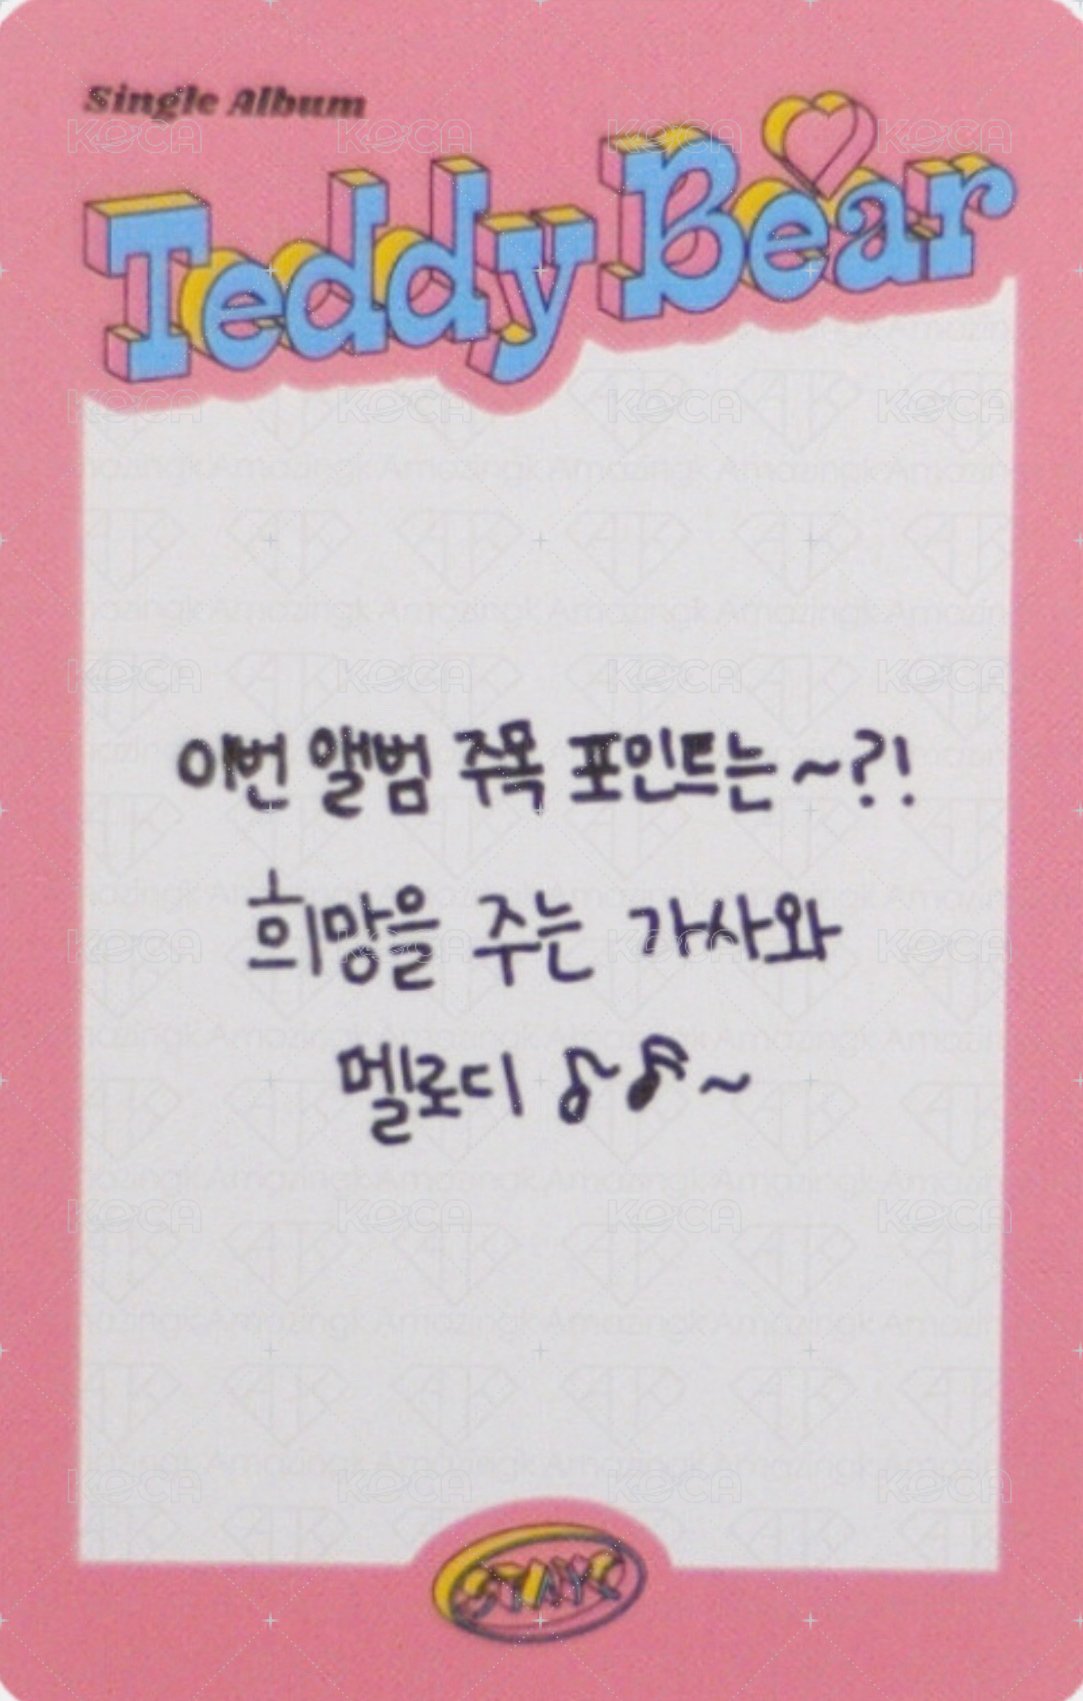 Single Album
Teddy Bear
이번 앨범 주목 포인트는~?!
희망을 주는 가사와
멜로디 ♪♬~
STAYC
KOCA
Amazingk